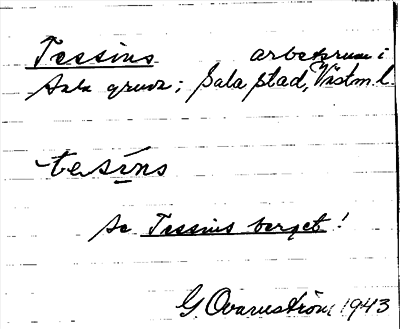 Tessins arbetsrum i
Sala gruva; Sala stad, Västm l.
tesins
Se Tessins berget!
G. Ovarnström 1943